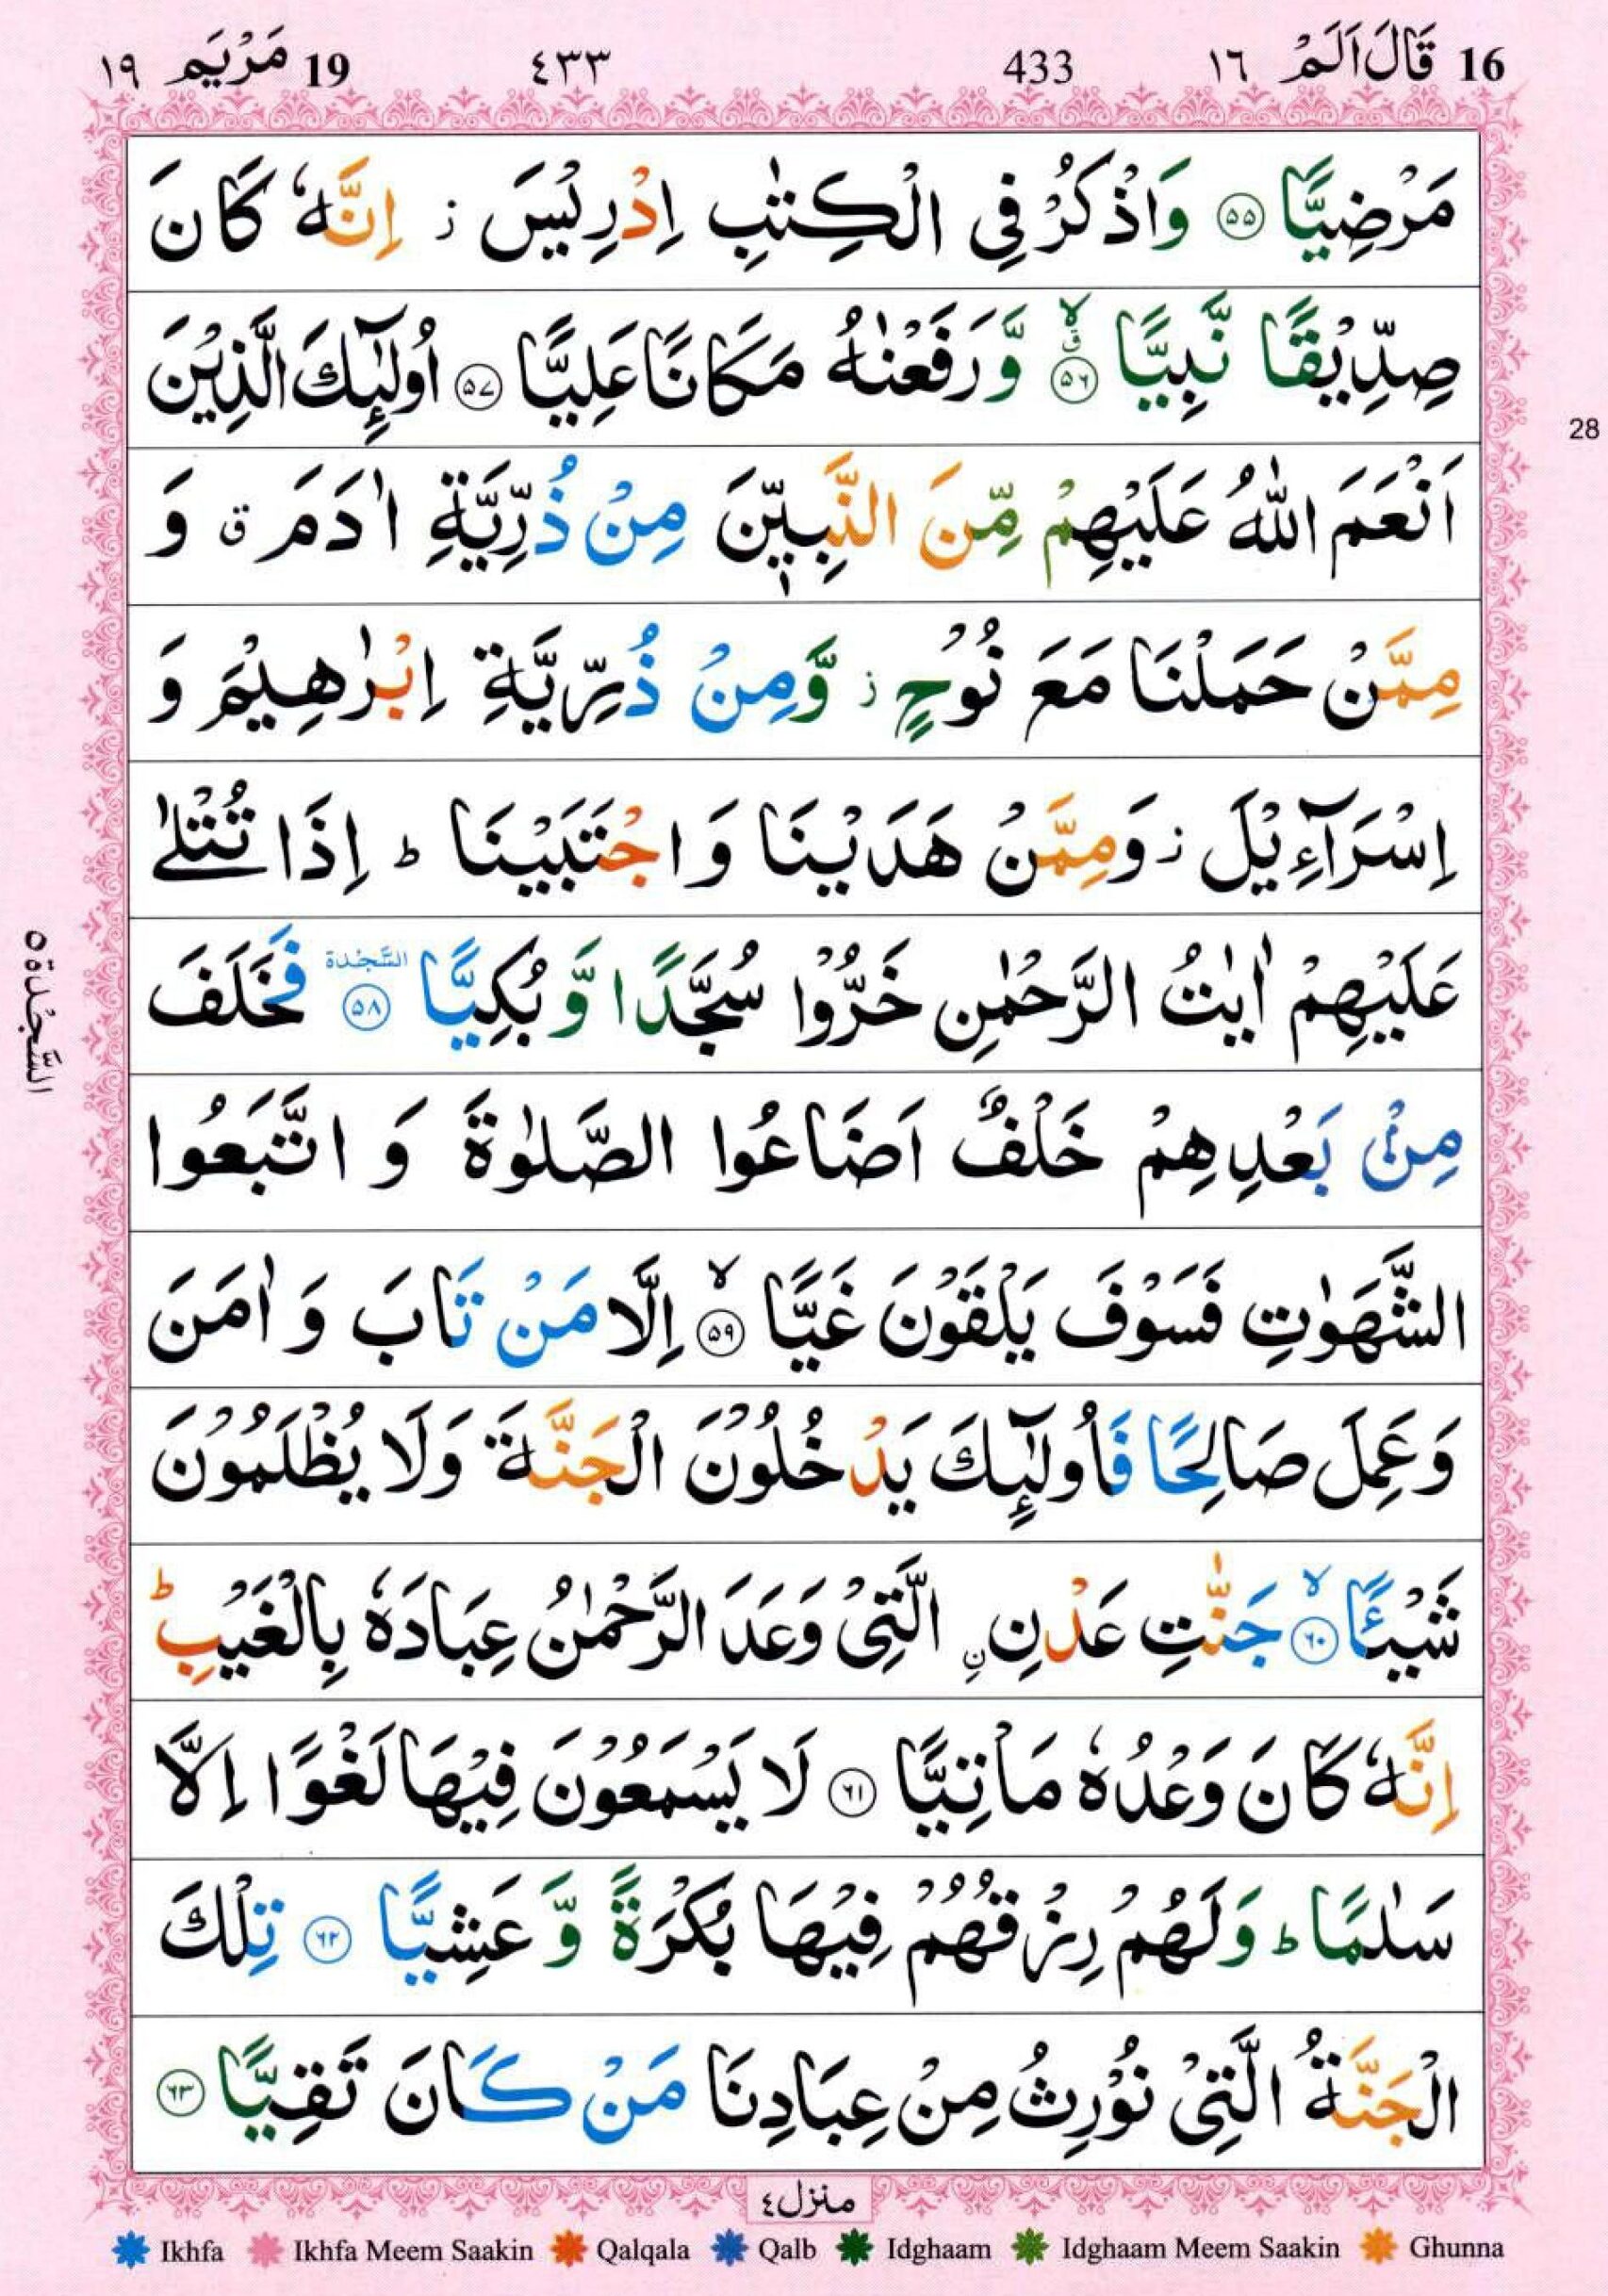 16 قَالَ اَلَمْ ١٦ 433 ٤٣٣ 19 مَرْيَم ١٩
مَرْضِيًّا ﴿۵۵﴾ وَاذْكُرْ فِى الْكِتٰبِ اِدْرِيْسَ ز اِنَّهٗ كَانَ
صِدِّيْقًا نَّبِيًّا ﴿۵۶﴾ۙق وَّ رَفَعْنٰهُ مَكَانًا عَلِيًّا ﴿۵۷﴾ اُولٰٓئِكَ الَّذِيْنَ
28
اَنْعَمَ اللّٰهُ عَلَيْهِمْ مِّنَ النَّبِيّٖنَ مِنْ ذُرِّيَّةِ اٰدَمَ ق وَ
مِمَّنْ حَمَلْنَا مَعَ نُوْحٍ ز وَّمِنْ ذُرِّيَّةِ اِبْرٰهِيْمَ وَ
اِسْرَآءِيْلَ ز وَمِمَّنْ هَدَيْنَا وَ اجْتَبَيْنَا ط اِذَا تُتْلٰى
عَلَيْهِمْ اٰيٰتُ الرَّحْمٰنِ خَرُّوْا سُجَّدًا وَّ بُكِيًّا ﴿۵۸﴾ السَّجْدَة فَخَلَفَ
السَّجْدَة ۵
مِنْۢ بَعْدِهِمْ خَلْفٌ اَضَاعُوا الصَّلٰوةَ وَ اتَّبَعُوا
الشَّهَوٰتِ فَسَوْفَ يَلْقَوْنَ غَيًّا ﴿۵۹﴾ۙ اِلَّا مَنْ تَابَ وَ اٰمَنَ
وَعَمِلَ صَالِحًا فَاُولٰٓئِكَ يَدْخُلُوْنَ الْجَنَّةَ وَلَا يُظْلَمُوْنَ
شَيْـًٔا ﴿۶۰﴾ۙ جَنّٰتِ عَدْنِ ࣙالَّتِىْ وَعَدَ الرَّحْمٰنُ عِبَادَهٗ بِالْغَيْبِ ط
اِنَّهٗ كَانَ وَعْدُهٗ مَاْتِيًّا ﴿۶۱﴾ لَا يَسْمَعُوْنَ فِيْهَا لَغْوًا اِلَّا
سَلٰمًا ط وَلَهُمْ رِزْقُهُمْ فِيْهَا بُكْرَةً وَّ عَشِيًّا ﴿۶۲﴾ تِلْكَ
الْجَنَّةُ الَّتِىْ نُوْرِثُ مِنْ عِبَادِنَا مَنْ كَانَ تَقِيًّا ﴿۶۳﴾
منزل ٤
Ikhfa Ikhfa Meem Saakin Qalqala Qalb Idghaam Idghaam Meem Saakin Ghunna